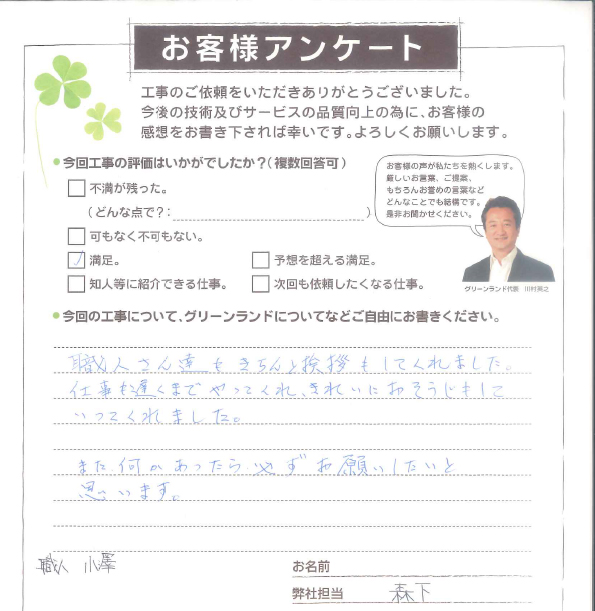 お客様アンケート
工事のご依頼をいただきありがとうございました。
今後の技術及びサービスの品質向上の為に、お客様の
感想をお書き下されば幸いです。よろしくお願いします。
●今回工事の評価はいかがでしたか？（複数回答可）
不満が残った。
（どんな点で？：　）
可もなく不可もない。
満足。
予想を超える満足。
知人等に紹介できる仕事。
次回も依頼したくなる仕事。
お客様の声が私たちを熱くします。
厳しいお言葉、ご提案、
もちろんお誉めの言葉など
どんなことでも結構です。
是非お聞かせください。
グリーンランド代表　川村英之
●今回の工事について、グリーンランドについてなどご自由にお書きください。
職人さん達もきちんと挨拶もしてくれました。
仕事も遅くまでやってくれ、きれいにおそうじもして
いってくれました。
また何かあったら必ずお願いしたいと
思います。
職人 小澤
お名前
弊社担当 森下